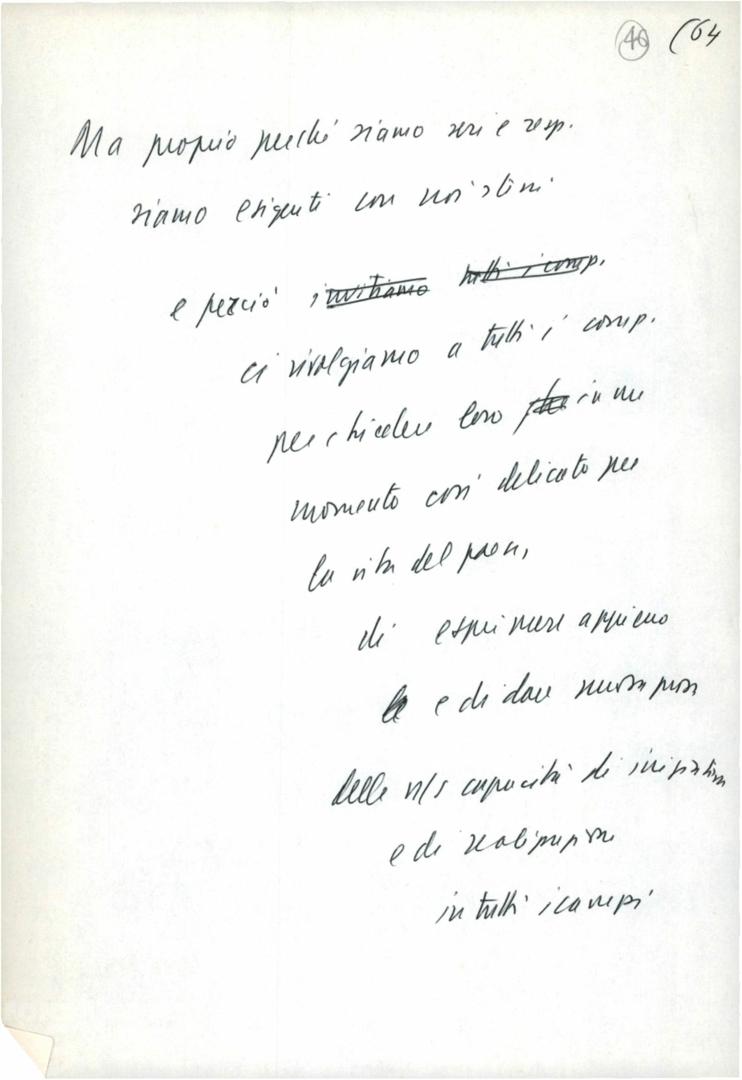 46 (64
Ma proprio perché siamo seri e resp.
siamo esigenti con noi stessi
e perciò invitiamo tutti i comp.
ci rivolgiamo a tutti i comp.
per chiedere loro in un
momento così delicato per
la vita del paese,
di esprimere appieno
e di dare nuova prova
delle n/s capacità di iniziativa
e di realizzazione
in tutti i campi